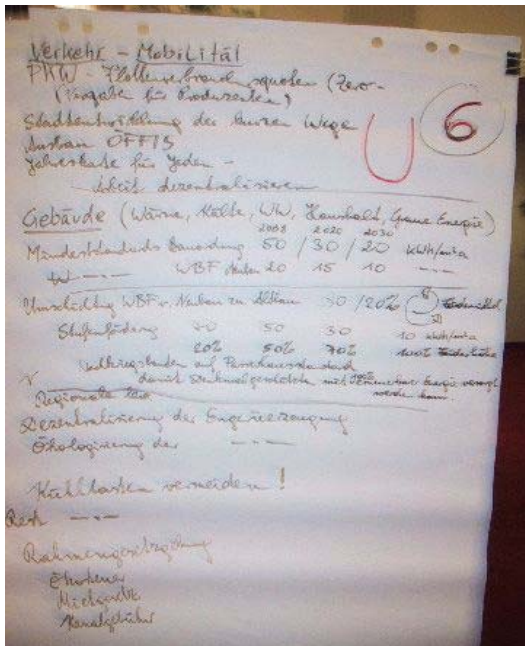 Verkehr - Mobilität
PKW - Flottenverbrauchsquoten (Zero-
(Vorgaben für Produzenten)
Stadtentwicklung der kurzen Wege
Ausbau ÖFFIS
Jahreskarte für Jeden -
Arbeit dezentralisieren
6
Gebäude (Wärme, Kälte, WW, Haushalt, Graue Energie)
2008 2020 2030
Mindeststandards Bauordnung 50 / 30 / 20 kWh/m²a
WBF Neubau 20 15 10 -"-
Umschichtung WBF v. Neubau zu Altbau 50 / 20%
Stufenförderung 50 30 10 kWh/m²a
20% 50% 70% 100%
auf Passivhausstandard
damit Denkmalgeschützte mit 100% Erneuerbar Energie versorgt
werden kann
Regionale
Dezentralisierung der Energieerzeugung
Ökologisierung der -"-
Kühllasten vermeiden!
Rest -"-
Rahmengesetzgebung
Ökosteuer
Mietrecht
Kanalgebühr